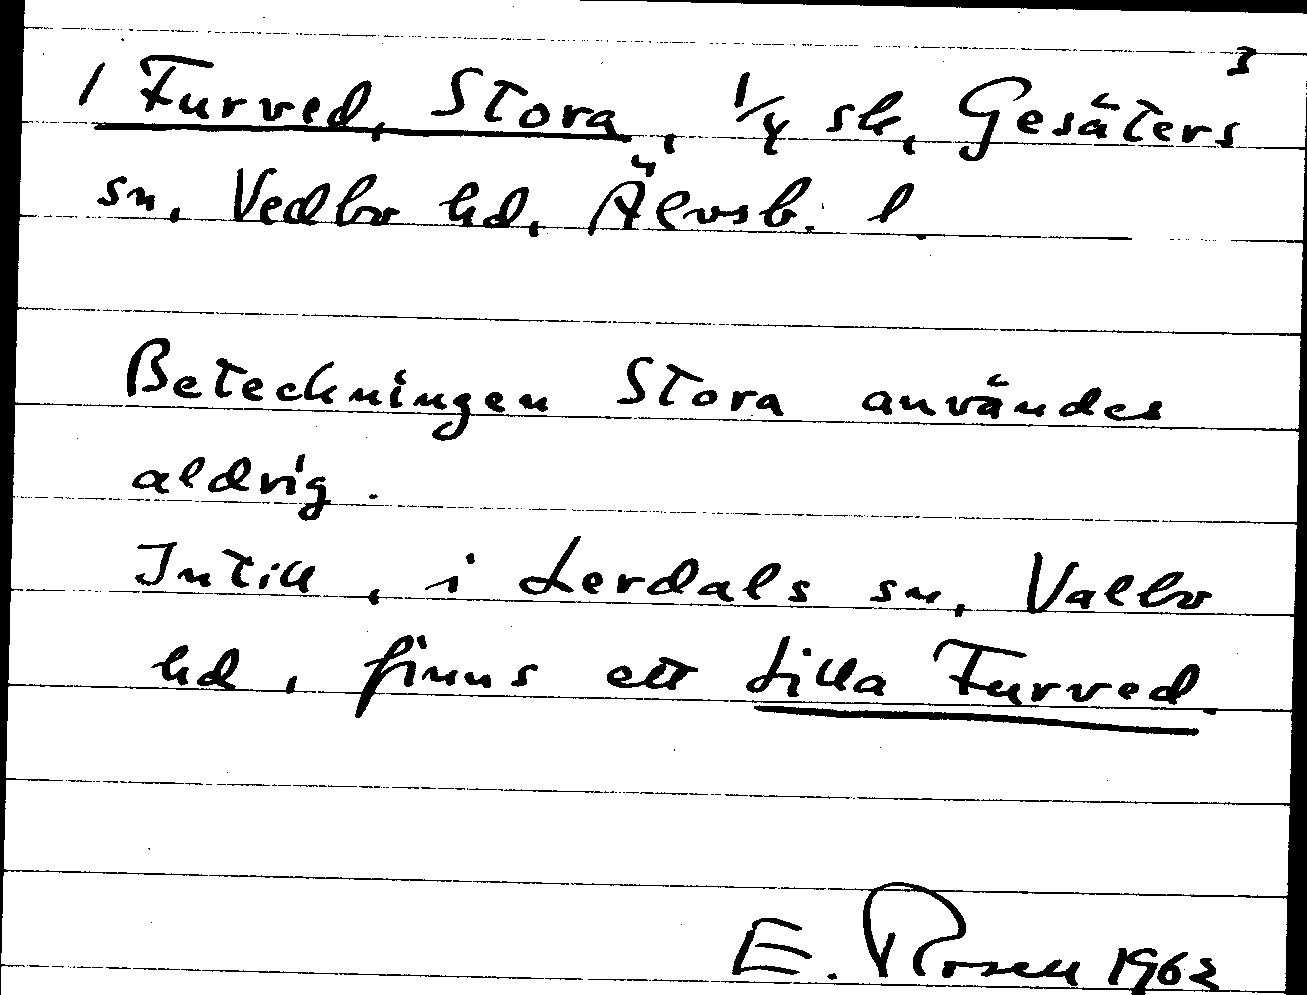 3
1 Furved, Stora, 1/4 sk, Gesäters
sn, Vedbo hd, Älvsb. l.
Beteckningen Stora användes
aldrig.
Intill, i Lerdals sn, Valbo
hd, finns ett Lilla Furved.
E. Rosell 1962